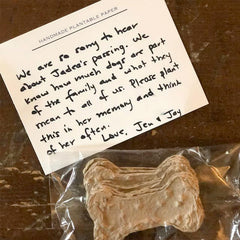 HANDMADE PLANTABLE PAPER
We are so sorry to hear
about Jadea's passing. We
know how much dogs are part
of the family and what they
mean to all of us. Please plant
this in her memory and think
of her often.
Love, Jen & Jay